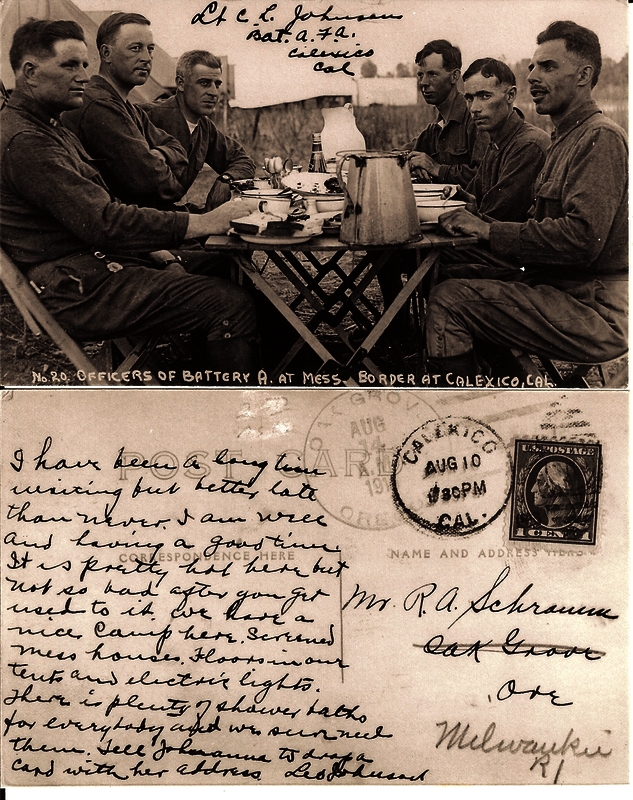 Lt C. L. Johnson
Bat. A. F.A.
Calexico
Cal
No. 20. OFFICERS OF BATTERY A. AT MESS. BORDER AT CALEXICO, CAL.
OAK GROVE
AUG
14
A.M.
191
ORE
CALEXICO
AUG 10
30PM
CAL.
U.S. POSTAGE
1 CENT 1
POST CARD
CORRESPONDENCE HERE
NAME AND ADDRESS HERE
I have been a long time
writing but better late
than never. I am well
and having a good time
It is pretty hot here but
not so bad after you get
used to it. We have a
nice Camp here. Screened
mess houses. Floors in our
tents and electric lights.
There is plenty of shower baths
for everybody and we sure need
them. Tell Johanna to drop a
card with her address. Leo Johnson
Mr. R. A. Schramm
Oak Grove
Ore
Milwaukie
R1